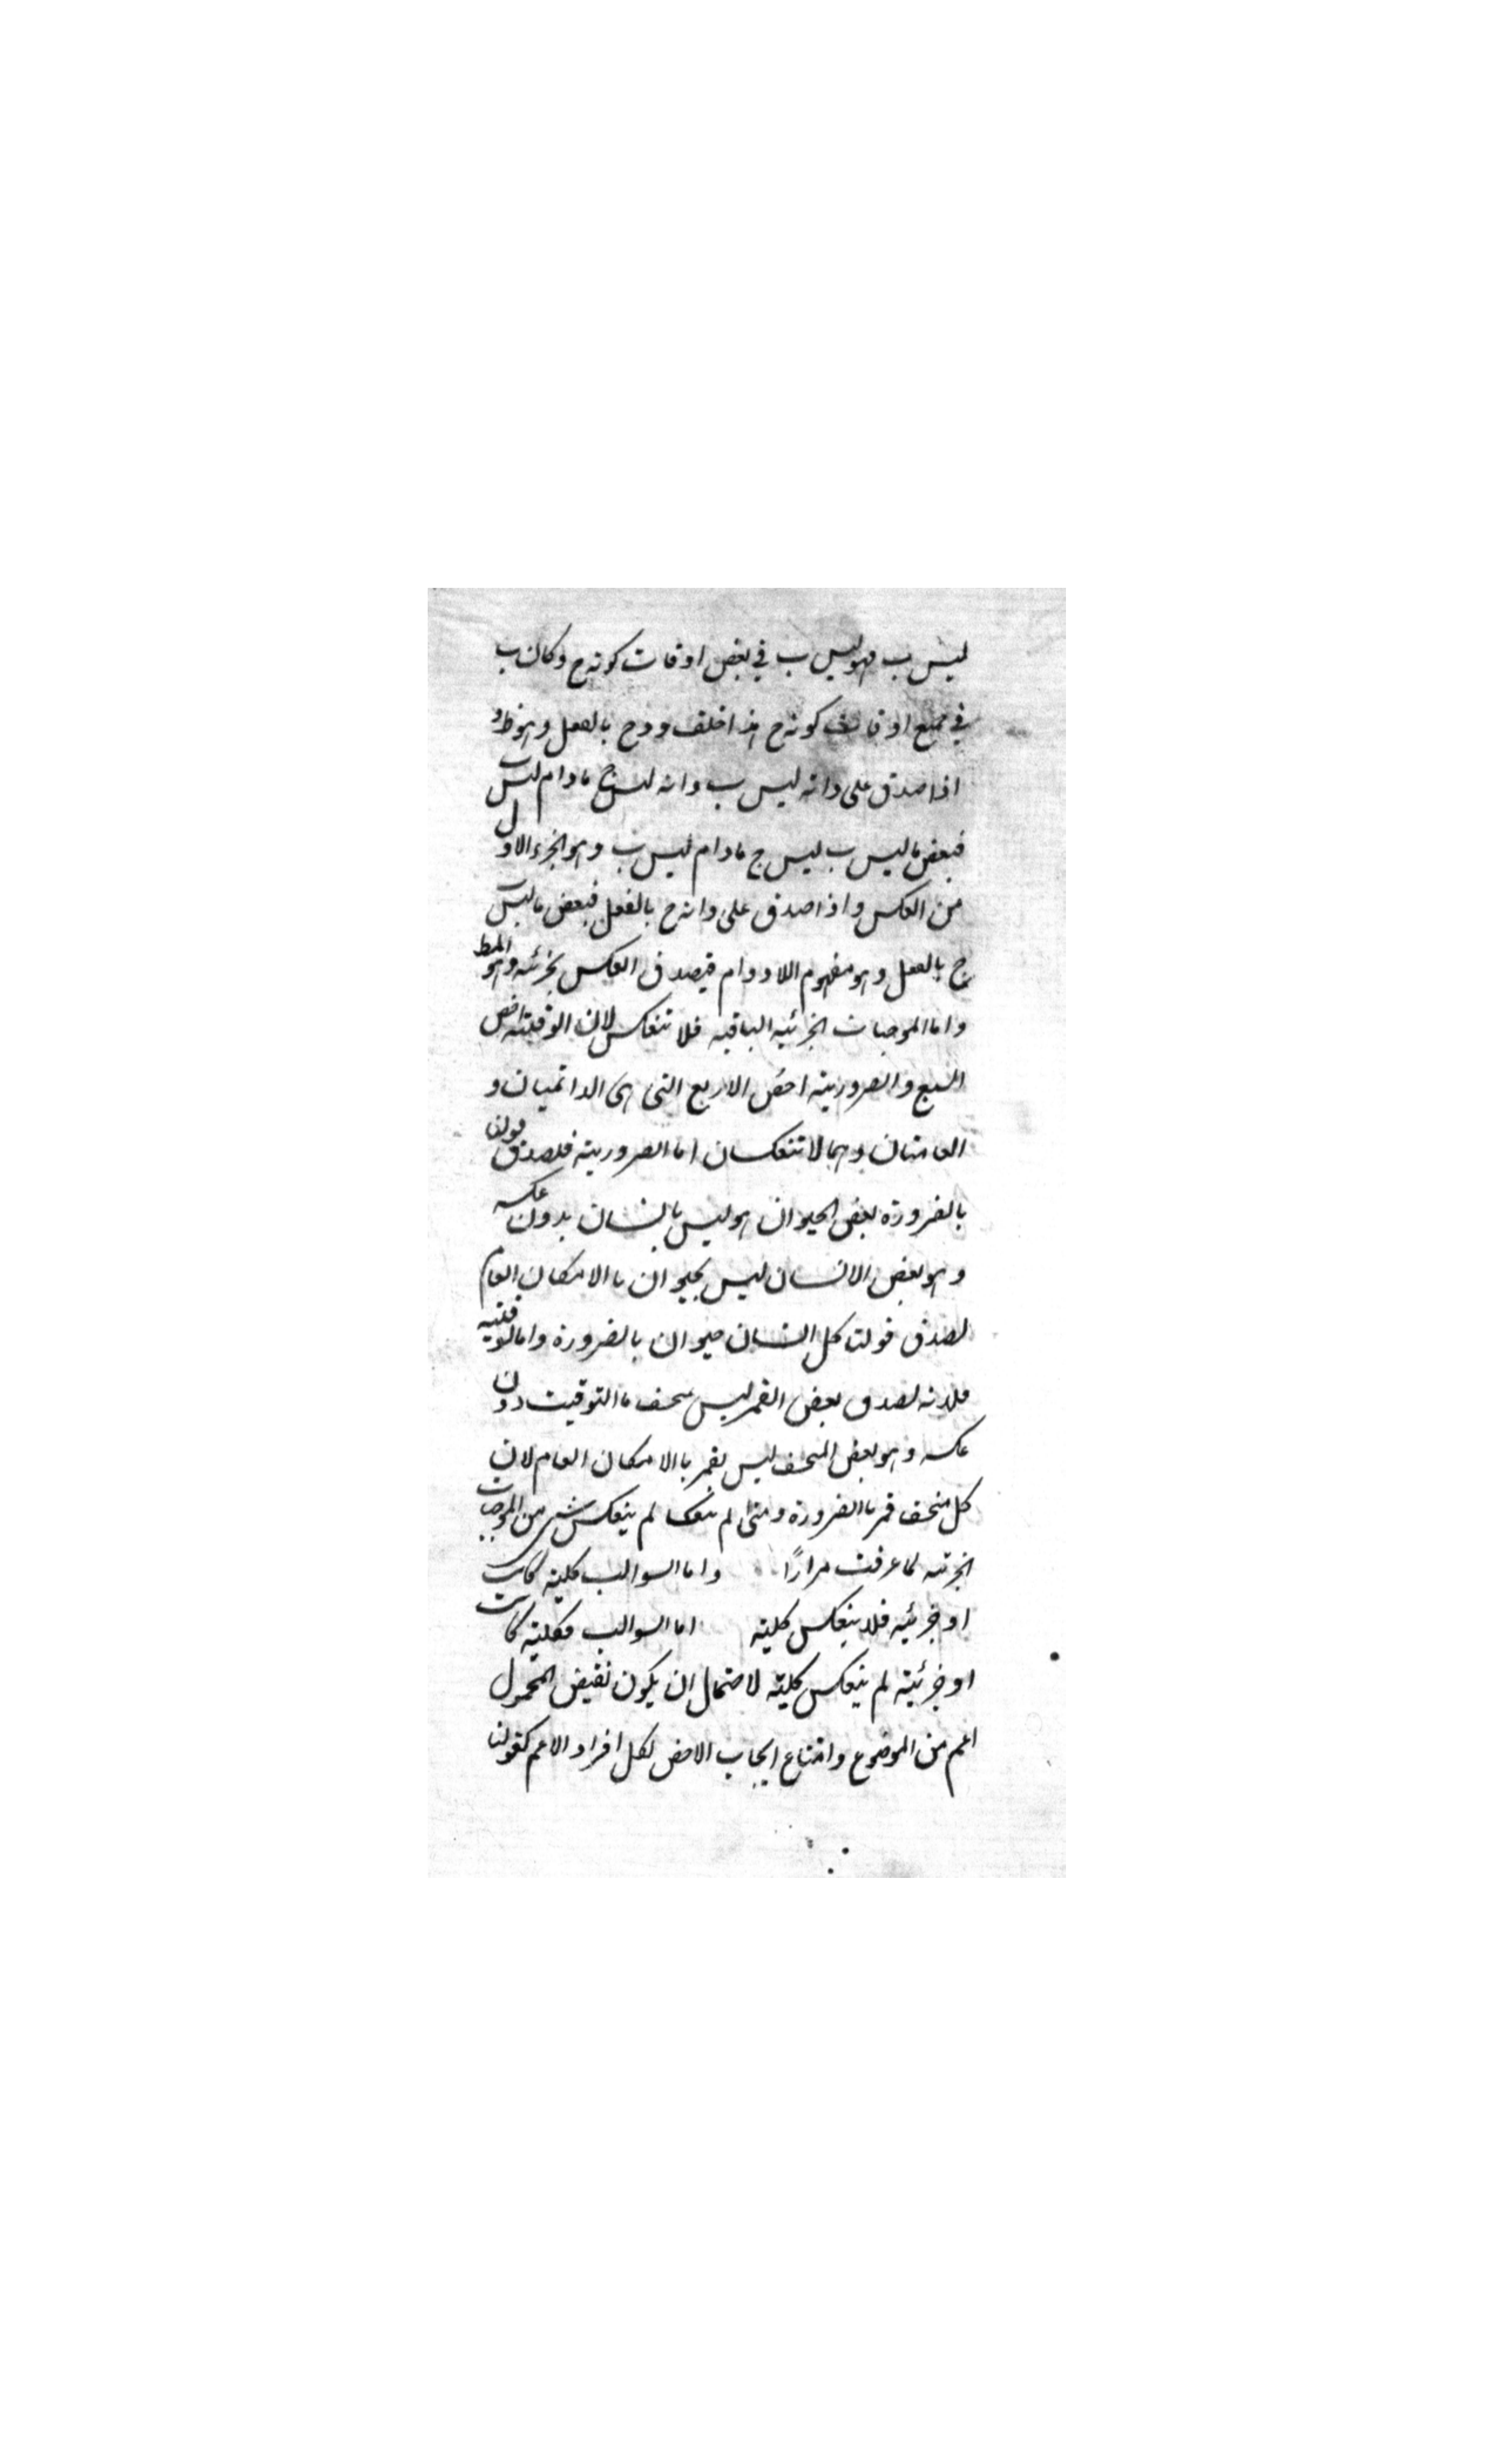 ليس ب فهو ليس ب في بعض اوقات كونه ج وكان ب
في جميع اوقات كونه ج هذا خلف و د ج بالفعل وهو ظ و
اذا صدق على د انه ليس ب وانه ليس ج مادام ليس ب
فبعض ما ليس ب ليس ج مادام ليس ب وهو الجزء الاول
من العكس واذا صدق على د انه ج بالفعل فبعض ما ليس ب
ج بالفعل وهو مفهوم اللادوام فيصدق العكس بجزئيه وهو المط
واما الموجبات الجزئية الباقيه فلا تنعكس لان الوقتية اخص
السبع والضرورية اخص الاربع التى هى الدائميتان و
العامتان وهما لا تنعكسان اما الضرورية فلصدق قولنا
بالضرورة بعض الحيوان هو ليس بانسان بدون عكسه
وهو بعض الانسان ليس بحيوان باالامكان العام
لصدق قولنا كل انسان حيوان بالضرورة واما الوقتيه
فلانه لصدق بعض القمر ليس بمنخسف باالتوقيت دون
عكسه وهو بعض المنخسف ليس بقمر باالامكان العام لان
كل منخسف قمر باالضرورة ومتى لم ينعكسا لم ينعكس شى من الموجبات
الجزئيه لما عرفت مرارًا واما السوالب كلية كانت
او جزئيه فلا ينعكس كلية اما السوالب فكلية كانت
او جزئية لم ينعكس كلية لاحتمال ان يكون نقيض المحمول
اعم من الموضوع وامتناع ايجاب الاخص لكل افراد الاعم كقولنا